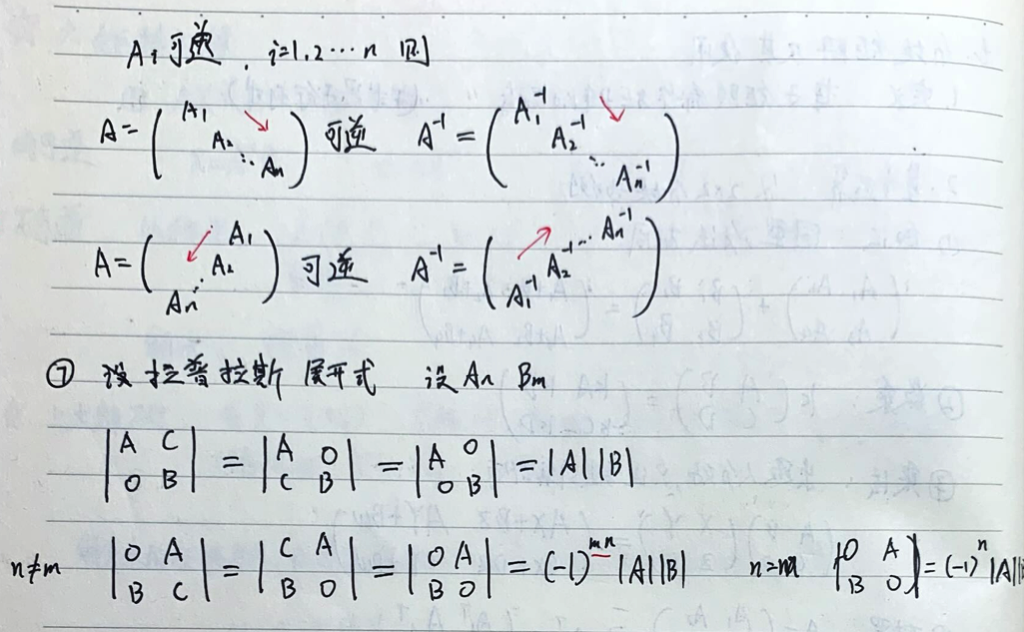 Aᵢ可逆, i=1,2…n 则
A=(A₁ A₂ ⋱ Aₙ) 可逆 A⁻¹=(A₁⁻¹ A₂⁻¹ ⋱ Aₙ⁻¹)
A=(A₁ A₂ ⋰ Aₙ) 可逆 A⁻¹=(Aₙ⁻¹ ⋰ A₂⁻¹ A₁⁻¹)
⑦ 设拉普拉斯展开式 设 Aₙ Bₘ
|A C; O B| = |A O; C B| = |A O; O B| = |A||B|
n≠m |O A; B C| = |C A; B O| = |O A; B O| = (-1)^{mn} |A||B| n=m |O A; B O| = (-1)^n |A||B